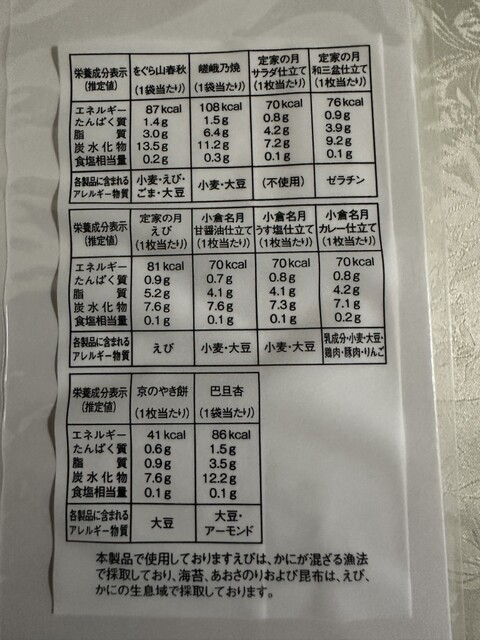 栄養成分表示
(推定値)
をぐら山春秋
(1袋当たり)
嵯峨乃焼
(1袋当たり)
定家の月
サラダ仕立て
(1枚当たり)
定家の月
和三盆仕立て
(1枚当たり)
エネルギー 87kcal 108kcal 70kcal 76kcal
たんぱく質 1.4g 1.5g 0.8g 0.9g
脂質 3.0g 6.4g 4.2g 3.9g
炭水化物 13.5g 11.2g 7.2g 9.2g
食塩相当量 0.2g 0.3g 0.1g 0.1g
各製品に含まれる
アレルギー物質
小麦・えび・
ごま・大豆
小麦・大豆
(不使用)
ゼラチン
栄養成分表示
(推定値)
定家の月
えび
(1枚当たり)
小倉名月
甘醤油仕立て
(1枚当たり)
小倉名月
うす塩仕立て
(1枚当たり)
小倉名月
カレー仕立て
(1枚当たり)
エネルギー 81kcal 70kcal 70kcal 70kcal
たんぱく質 0.9g 0.7g 0.8g 0.8g
脂質 5.2g 4.1g 4.1g 4.2g
炭水化物 7.6g 7.6g 7.3g 7.1g
食塩相当量 0.1g 0.1g 0.1g 0.2g
各製品に含まれる
アレルギー物質
えび
小麦・大豆
小麦・大豆
乳成分・小麦・大豆・
鶏肉・豚肉・りんご
栄養成分表示
(推定値)
京のやき餅
(1枚当たり)
巴旦杏
(1袋当たり)
エネルギー 41kcal 86kcal
たんぱく質 0.6g 1.5g
脂質 0.9g 3.5g
炭水化物 7.6g 12.2g
食塩相当量 0.1g 0.1g
各製品に含まれる
アレルギー物質
大豆
大豆・
アーモンド
本製品で使用しておりますえびは、かにが混ざる漁法
で採取しており、海苔、あおさのりおよび昆布は、えび、
かにの生息域で採取しております。